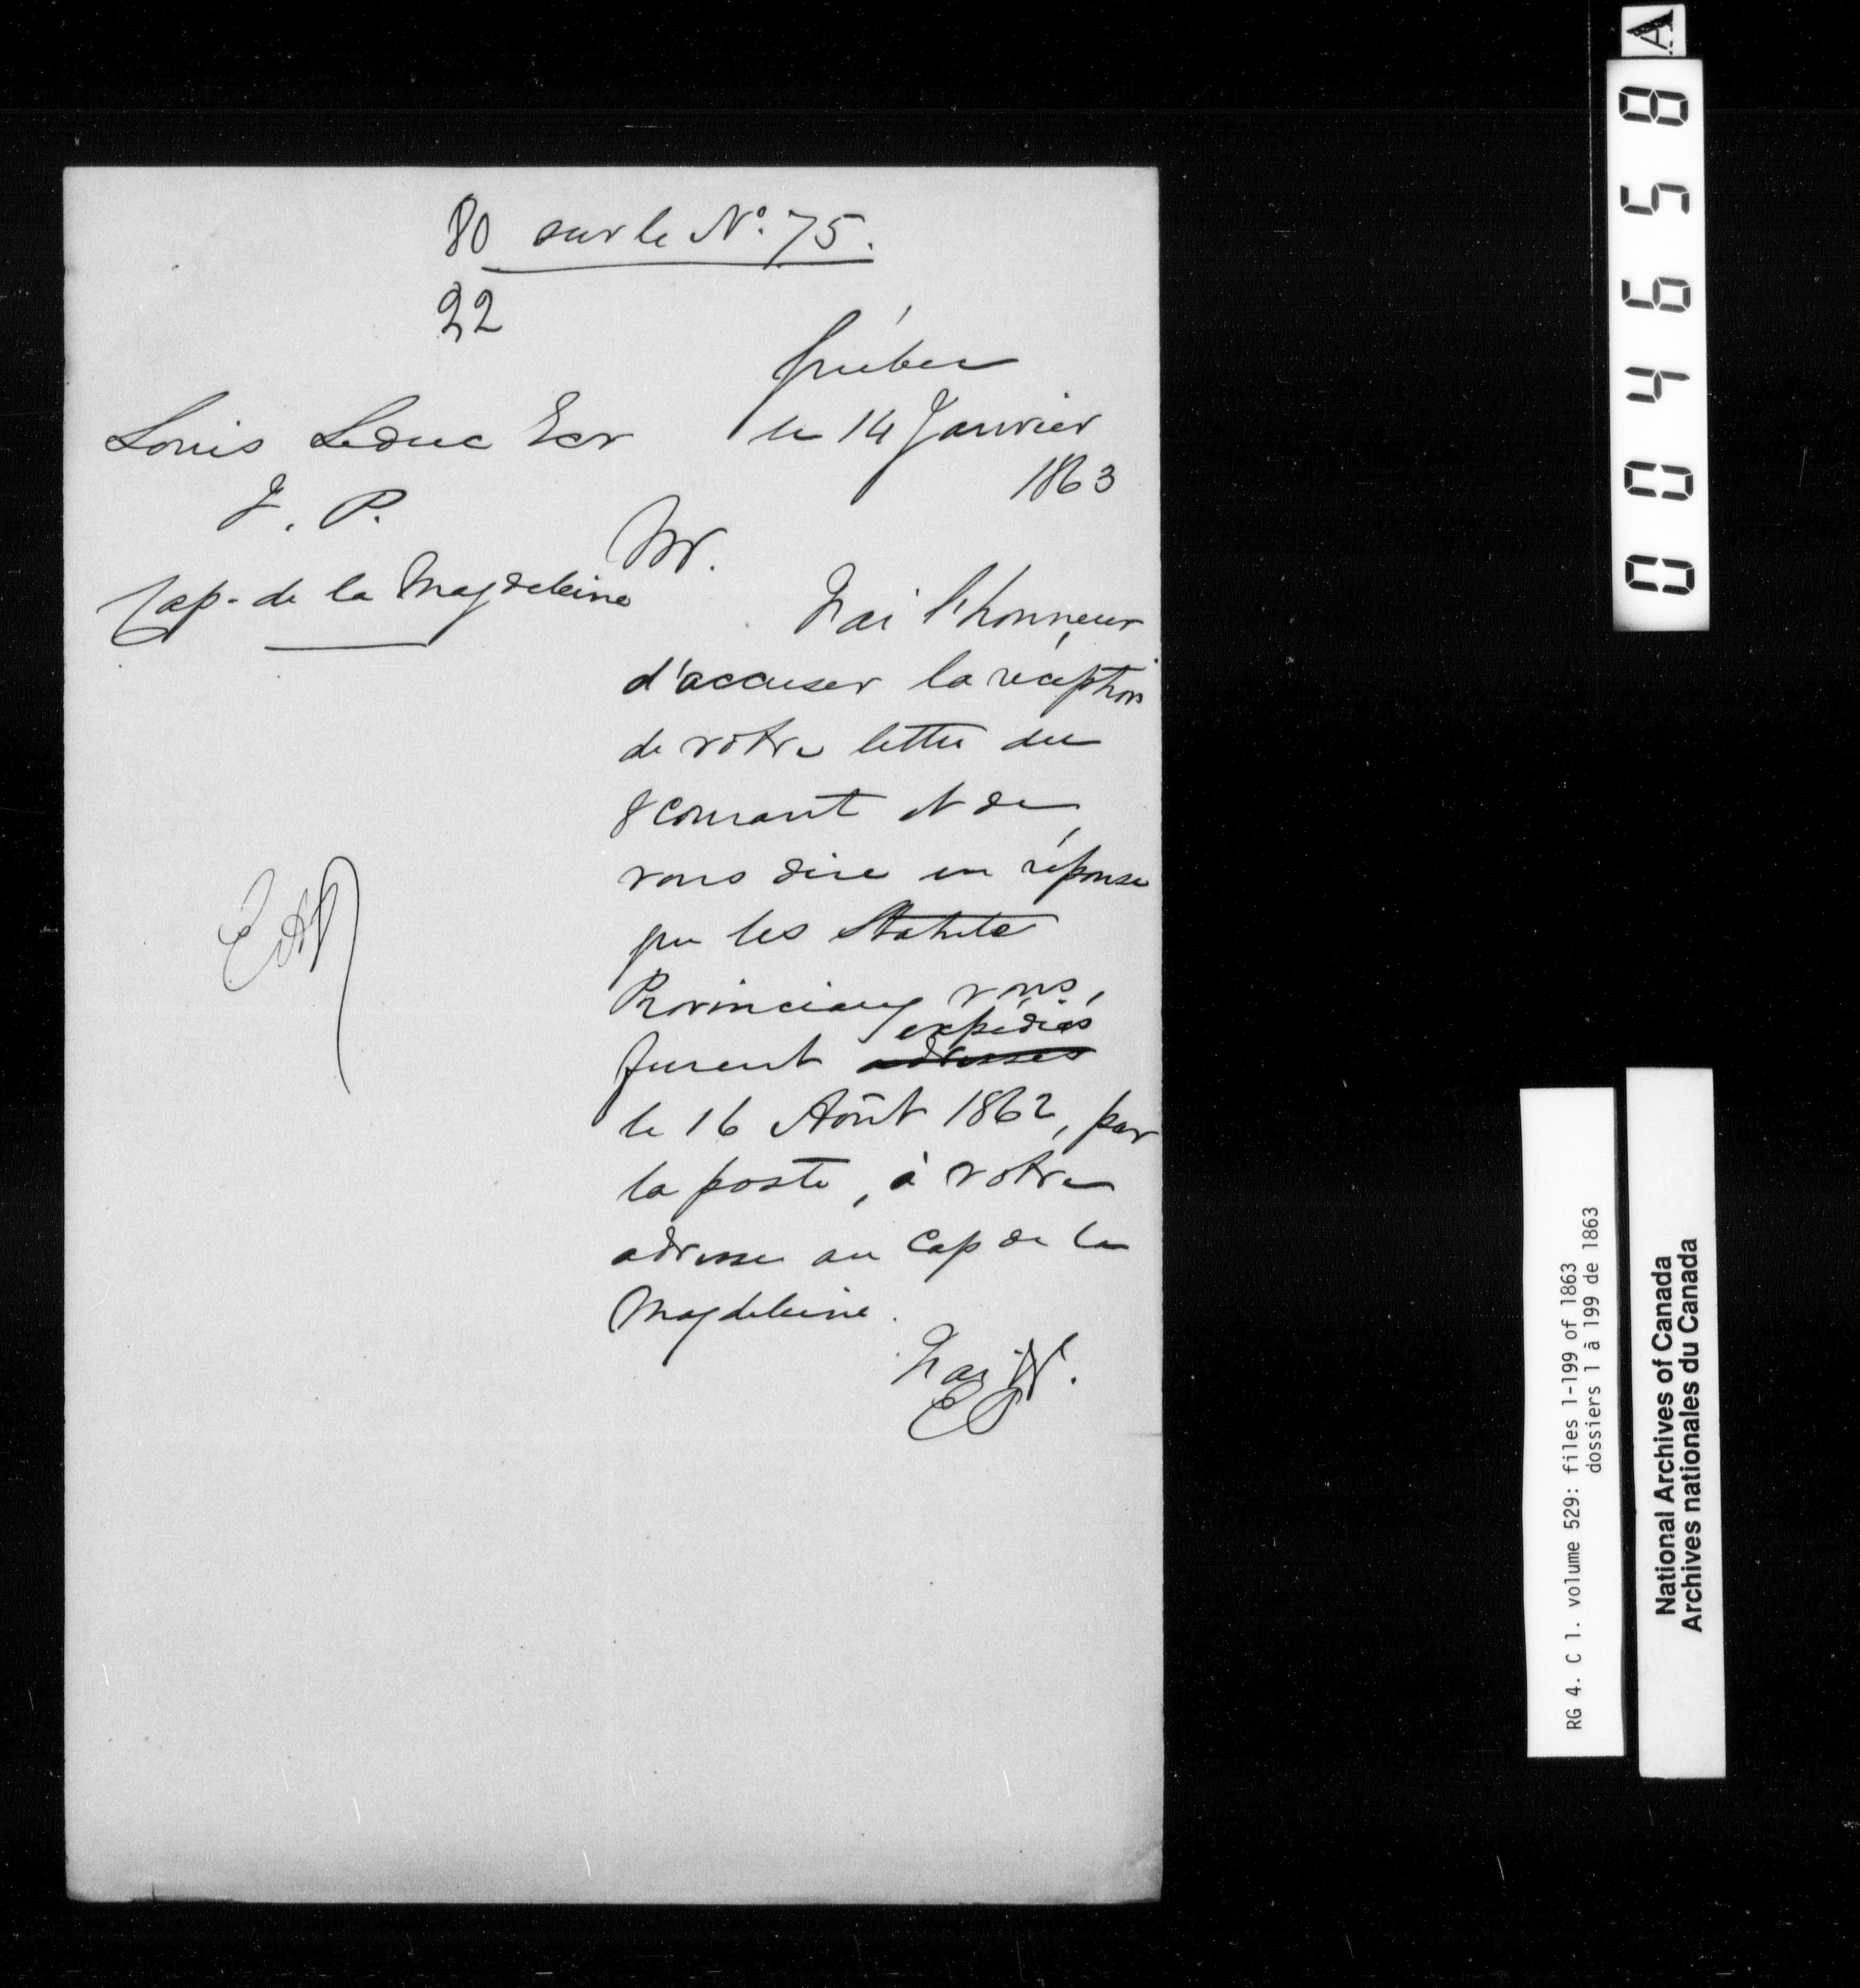 80 sur le No. 75.
22
Québec
le 14 Janvier
1863
Louis Leduc Ecr
J. P.
Cap. de la Magdeleine
Mr.
J'ai l'honneur
d'accuser la réception
de votre lettre du
8 courant et de
vous dire en réponse
que les Statuts
Provinciaux vous
furent adressés expédiés
le 16 Août 1862, par
la poste, à votre
adresse au Cap de la
Magdeleine.
J'ai
A
004658
RG 4. C 1. volume 529: files 1-199 of 1863
dossiers 1 à 199 de 1863
National Archives of Canada
Archives nationales du Canada